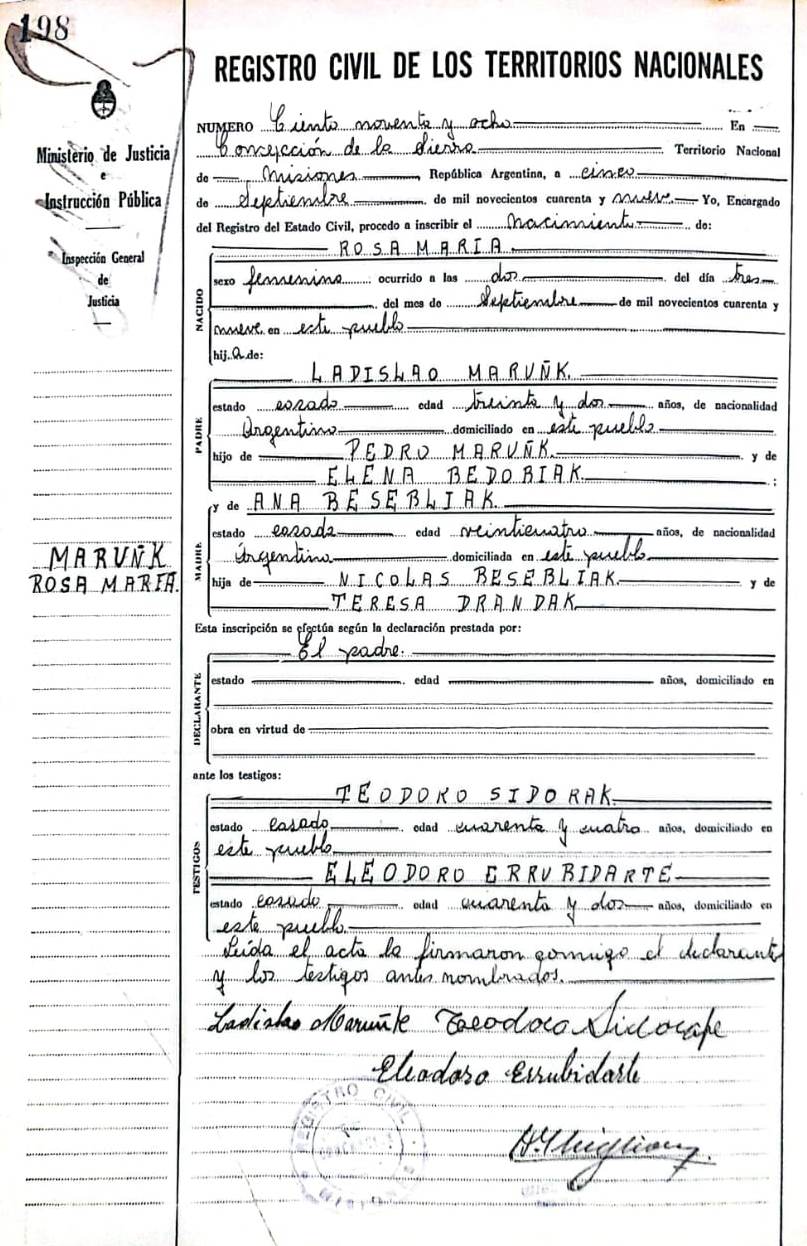 198
REGISTRO CIVIL DE LOS TERRITORIOS NACIONALES
Ministerio de Justicia
e
Instrucción Pública
Inspección General
de
Justicia
NUMERO Ciento noventa y ocho En
Concepción de la Sierra Territorio Nacional
de Misiones, República Argentina, a cinco
de Septiembre de mil novecientos cuarenta y nueve. Yo, Encargado
del Registro del Estado Civil, procedo a inscribir el Nacimiento de:
NACIDO
ROSA MARIA
sexo femenino ocurrido a las dos del día tres
del mes de Septiembre de mil novecientos cuarenta y
nueve en este pueblo
hija de:
PADRE
LADISLAO MARUÑK.
estado casado edad treinta y dos años, de nacionalidad
Argentino domiciliado en este pueblo
hijo de PEDRO MARUÑK. y de
ELENA BEDOBIAK. ;
MADRE
y de ANA BESEBLIAK.
estado casada edad veinticuatro años, de nacionalidad
Argentina domiciliada en este pueblo
hija de NICOLAS BESEBLIAK. y de
TERESA DRANDAK
MARUÑK
ROSA MARIA.
Esta inscripción se efectúa según la declaración prestada por:
El padre.
DECLARANTE
estado , edad años, domiciliado en
obra en virtud de
ante los testigos:
TESTIGOS
TEODORO SIDORAK.
estado casado edad cuarenta y cuatro años, domiciliado en
este pueblo
ELEODORO ERRUBIDARTE
estado casado edad cuarenta y dos años, domiciliado en
este pueblo.
Leida el acta la firmaron comigo el declarante
y los testigos antes nombrados.
Ladislao Maruñk Teodoro
Eleodoro Errubidarte
REGISTRO CIVIL
MISIONES